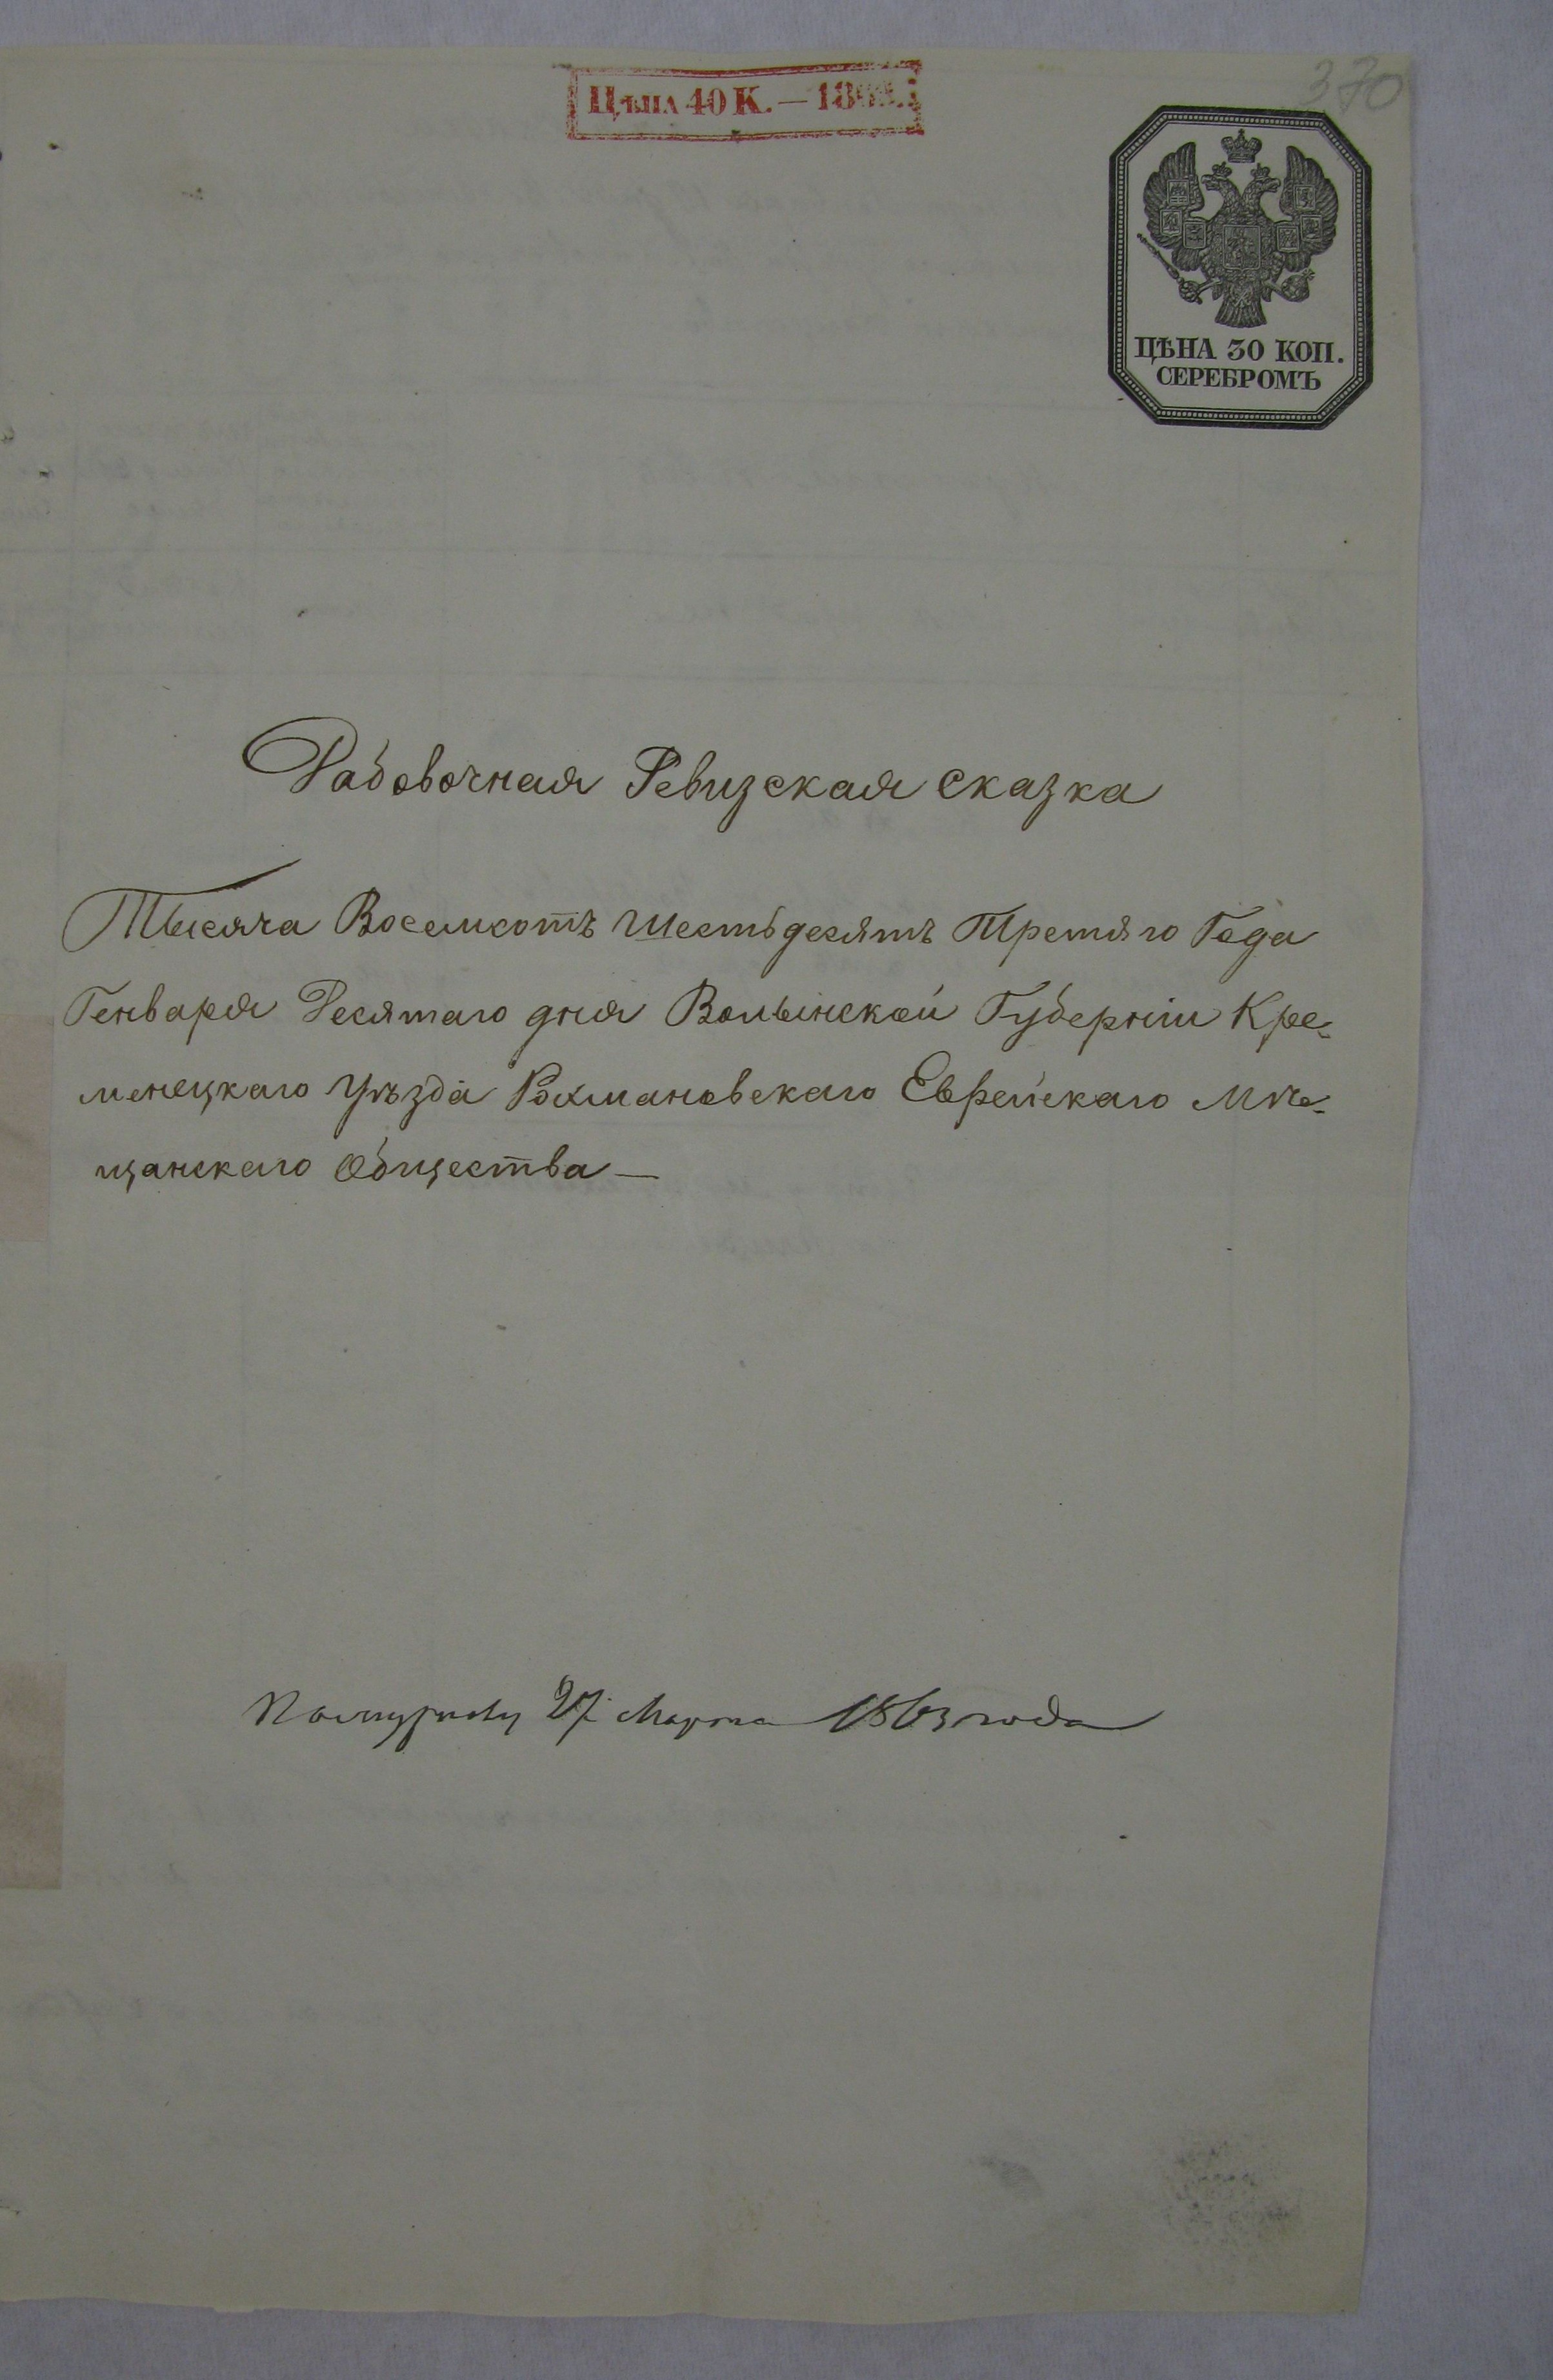 370
Цѣна 40 К. — 1863.
ЦѢНА 30 КОП.
СЕРЕБРОМЪ
Ревизская сказка
Тысяча Восемсотъ Шестьдесятъ Третяго Года
Генваря Десятаго дня Волынской Губерніи Кре-
менецкаго Уѣзда Рохмановскаго Еврейскаго Мѣ-
щанскаго Общества —
27 Марта 1863 года